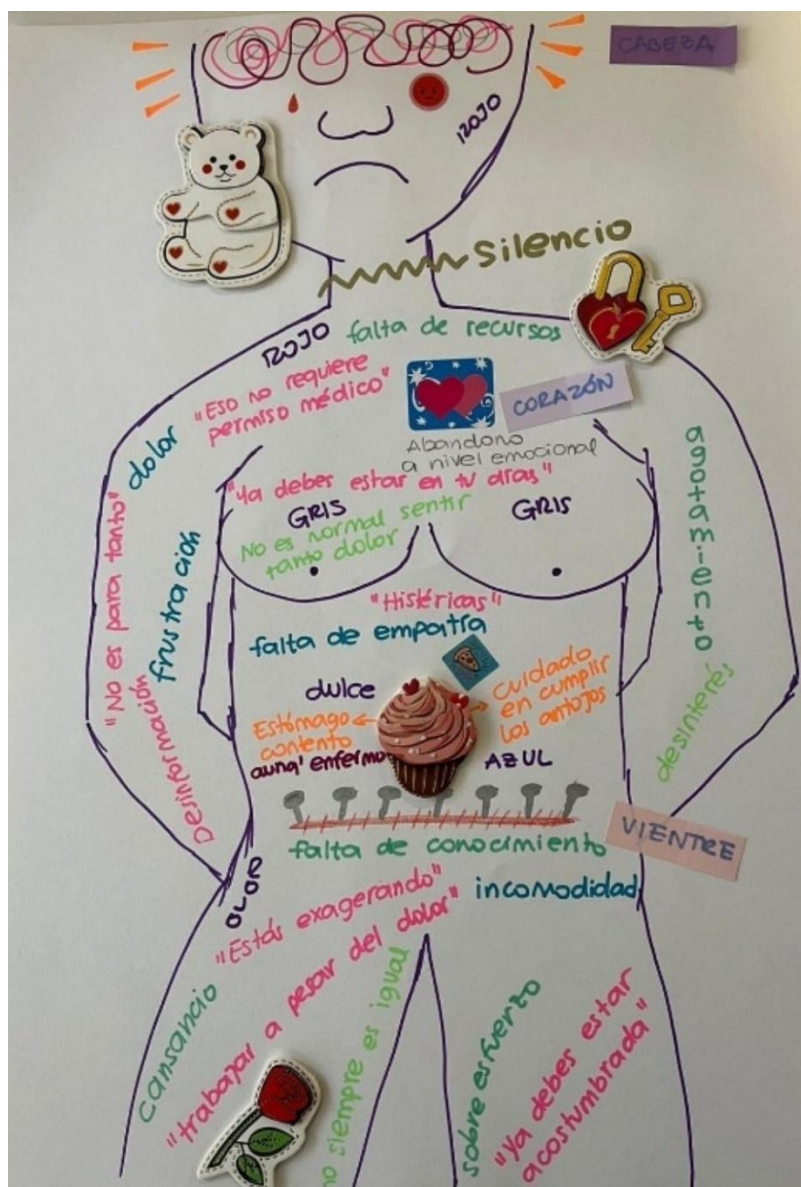 CABEZA
ROJO
silencio
ROJO
falta de recursos
"Eso no requiere
permiso médico"
CORAZÓN
Abandono
a nivel emocional
dolor
"Ya debes estar en tu días"
GRIS
GRIS
No es normal sentir
tanto dolor
agotamiento
"No es para tanto"
frustración
"Histéricas"
falta de empatía
dulce
cuidado
en cumplir
los antojos
Estómago
contento
aunq' enfermo
AZUL
Desinformación
desinterés
falta de conocimiento
VIENTRE
OLOR
"Estás exagerando"
incomodidad
cansancio
"trabajar a pesar del dolor"
no siempre es igual
sobre esfuerzo
"Ya debes estar
acostumbrada"